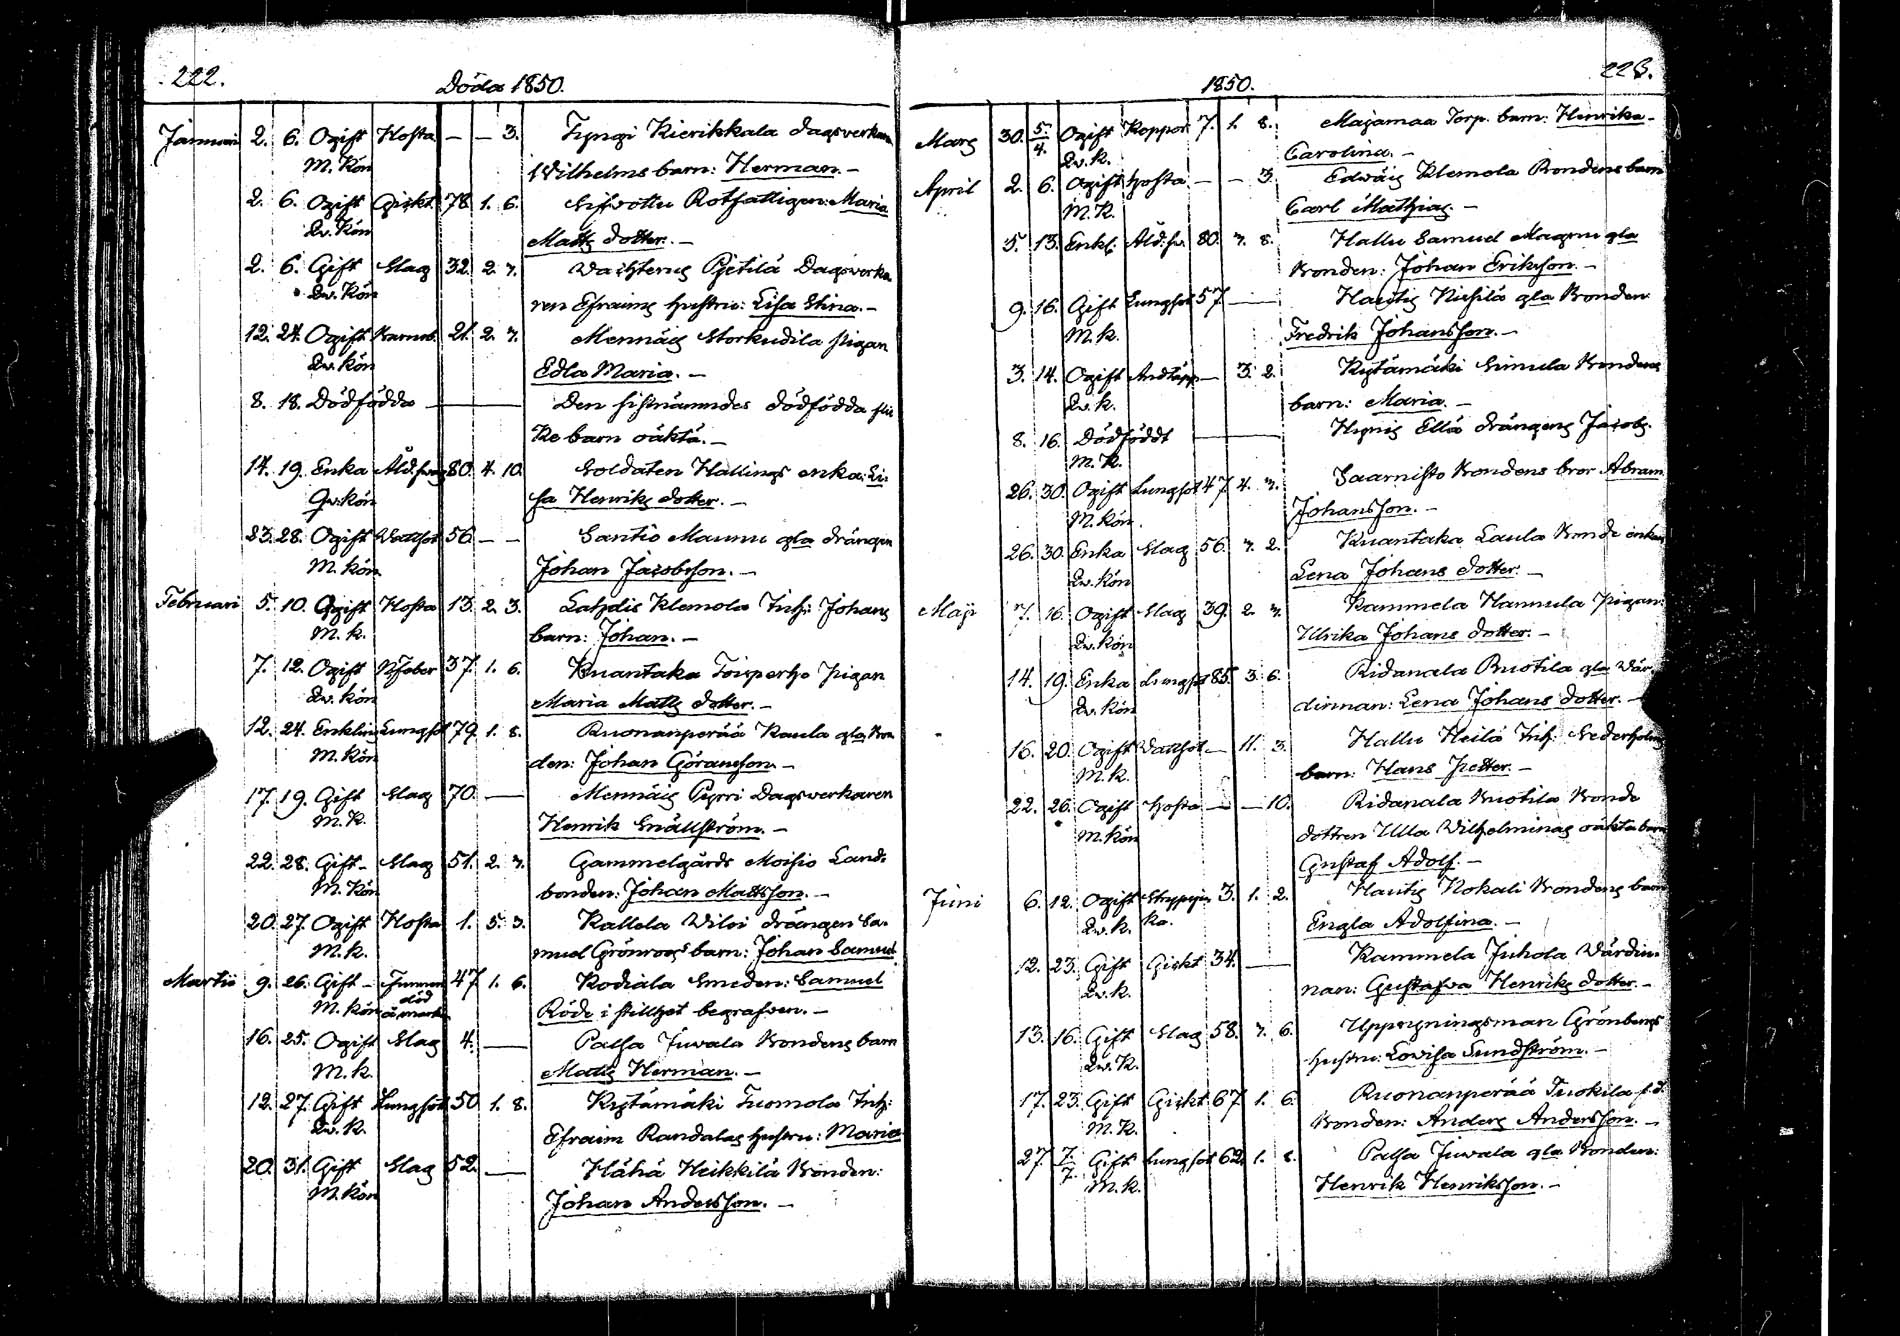 222.
Döda 1850.
Januari 2. 6. Ogift Hosta — — 3. Tyngi Kierikkala Dagsverkaren
M. Kön Wilhelms barn: Herman. —
2. 6. Ogift Gickt 78 1. 6. Rotfattigen: Maria
Qv. Kön Matts dotter. —
2. 6. Gift Slag 32. 2. 7. Pietilä Dagsverka
Qv. Kön ren Efraims hustru: Lisa Stina. —
12. 24. Ogift 21. 2. 7. Mennäis Storkudila pigan
Qv. Kön Edla Maria. —
8. 18. Dödfödda — Den sistnämndes dödfödda flic
ke barn oäkta. —
14. 19. Enka Åld.svag 80. 4. 10. Soldaten Hallings enka: Li-
Qv: Kön sa Henriks dotter. —
23. 28. Ogift Wattsot 56. — — Santio Maunu gla drängen
M. Kön Johan Jacobsson. —
Februari 5. 10. Ogift Hosta 13. 2. 3. Lahdis Klemola Inh: Johans
M. k. barn: Johan. —
7. 12. Ogift N.feber 37. 1. 6. Kuantaka Toisperho pigan
Qv. kön Maria Matts dotter. —
12. 24. Enkling Lungsot 79. 1. 8. Ruonanperää Kaula gla Bon
M. Kön den: Johan Göransson. —
17. 19. Gift Slag 70. — Mennäis Pyrri Dagsverkaren
M. K. Henrik Snällström. —
22. 28. Gift — Slag 51. 2. 7. Gammelgårds Moisio Land-
M. Kön bonden: Johan Mattsson. —
20. 27. Ogift Hosta 1. 5. 3. Kallela Wilo drängen Sa-
M. k. muel Grönroos barn: Johan Samuel
Martii 9. 26. Gift — Funnen 47 1. 6. Kodiala Smeden: Samuel
död
M. Kön å marken Röde i stillhet begrafven. —
16. 25. Ogift Slag 4. — Palsa Juvala Bondens barn
M. k. Matts Herman. —
12. 27. Gift Lungsot 50 1. 8. Kytämäki Tuomola Inh:
Qv. K. Efraim Randalas hustru: Maria
20. 31. Gift Slag 52. — Hähä Heikkilä Bonden:
M. Kön Johan Andersson. —
223.
1850.
Mars 30. 5/4. Ogift Koppor 7. 1. 8. Majamaa Torp. barn: Henrika-
Qv. k. Carolina. —
April 2. 6. Ogift Hosta — — 3. Edväis Klemola Bondens barn
M. K. Carl Mathias. —
5. 13. Enkl. Åld.sv. 80. 7. 8. Hallu Samuel Maunu gla
Bonden: Johan Eriksson. —
9. 16. Gift Lungsot 57. — Hautis Knifilä gla Bonden
M. k. Fredrik Johansson. —
3. 14. Ogift Andtäpp — 3. 2. Kytämäki Simula Bondens
Qv. k. barn: Maria. —
8. 16. Dödföddt — Hypis Ellä drängens Jacobs.
M. K.
26. 30. Ogift Lungsot 47. 4. 7. Saarnisto Bondens bror Abram
M. Kön. Johansson. —
26. 30. Enka Slag 56. 7. 2. Kuantaka Laula Bonde enkan
Qv. Kön Lena Johans dotter. —
Maji 7. 16. Ogift Slag 39. 2. 7. Kammela Hannula pigan:
Qv. Kön Ulrika Johans dotter. —
14. 19. Enka Lungsot 85. 3. 6. Ridanala Buotila gla Vär-
Qv. Kön dinnan: Lena Johans dotter. —
16. 20. Ogift Wattsot — 11. 3. Hallu Heilä Inh: Sederholms
M. k. barn: Hans Petter. —
22. 26. Ogift Hosta — — 10. Ridanala Buotila Bonde
M. Kön dottren Ulla Wilhelminas oäkta barn
Gustaf Adolf. —
Juni 6. 12. Ogift Strypsju 3. 1. 2. Hautis Kokali Bondens barn
Qv. k. ka. Engla Adolfina. —
12. 23. Gift Gickt 34. — Kammela Juhola Värdin-
Qv. k. nan: Gustafva Henriks dotter. —
13. 16. Gift Slag 58. 7. 6. Uppsyningsman Grönbergs
Qv. K. hustru: Lovisa Sundström. —
17. 23. Gift Gickt 67 1. 6. Ruonanperää Tuokila f.d.
M. K. Bonden: Anders Andersson. —
27. 7/7. Gift Lungsot 62. 1. 8. Palsa Juvala gla Bonden:
M. k. Henrik Henriksson. —